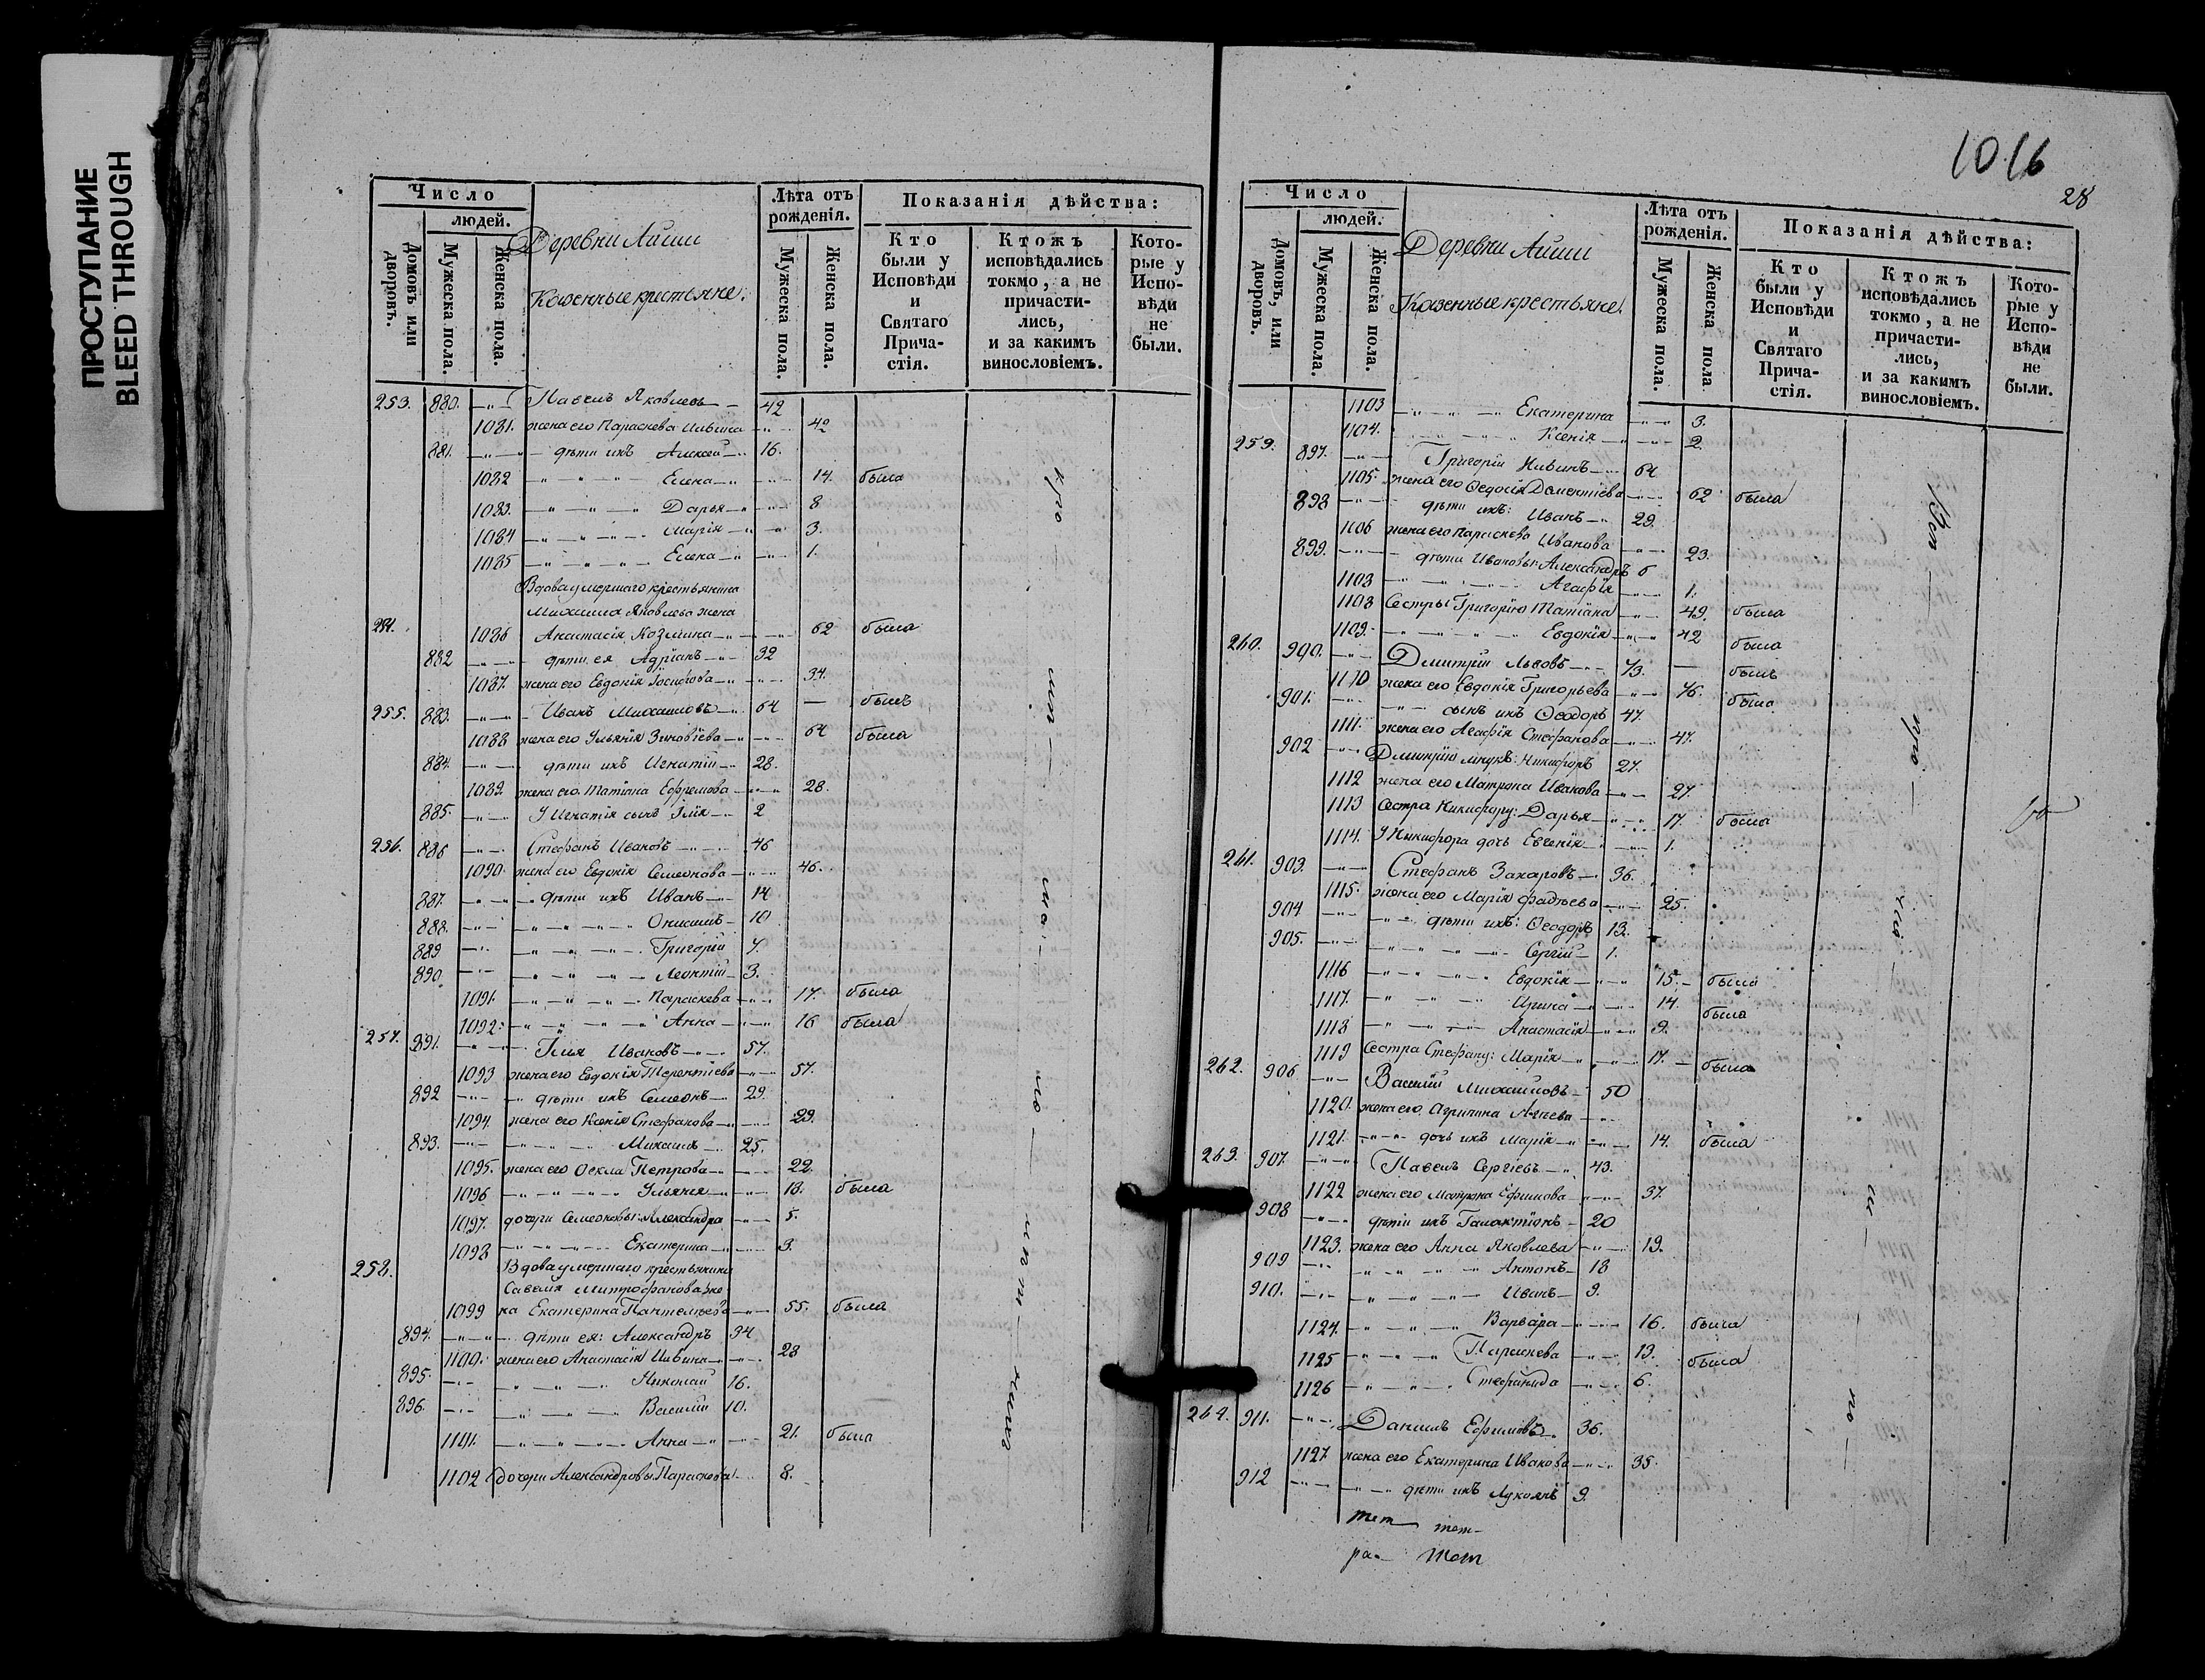 ПРОСТУПАНИЕ
BLEED THROUGH
1016
28
Число
людей.
Домовъ или дворовъ.
Мужеска пола.
Женска пола.
Деревни Айши
Казенные крестьяне.
Лѣта отъ рожденія.
Мужеска пола.
Женска пола.
Показанія дѣйства:
Кто были у Исповѣди и Святаго Прича-стія.
Ктожъ исповѣдались токмо, а не причасти-лись, и за какимъ винословіемъ.
Кото-рые у Испо-вѣди не были.
253. 880. Павелъ Яковлевъ 42
1081. жена его Параскева Ильина 42
881. дѣти ихъ Алексей 16.
1082 Елена 14. была
1083. Дарья 8
1084 Марія 3.
1085 Елена 1.
Вдова умершаго крестьянина
Михаила Яковлева жена
254. 1086 Анастасія Козмина 62 была
882 дѣти ея Адріанъ 32
1087. жена его Евдокія Іосифова 34.
255. 883. Иванъ Михаиловъ 64 былъ
1088 жена его Ульянія Зиновіева 64 была
884. дѣти ихъ Игнатій 28.
1089. жена его Татіана Ефремова 28.
885. У Игнатія сынъ Илія 2
256. 886 Стефанъ Ивановъ 46
1090. жена его Евдокія Семеонова 46.
887. дѣти ихъ Иванъ 14
888. Онисимъ 10
889 Григорій 7.
890. Леонтій 3.
1091. Параскева 17. была
1092. Анна 16 была
257. 891. Илія Ивановъ 57.
1093 жена его Евдокія Терентіева 57.
892 дѣти ихъ Семеонъ 29.
1094. жена его Ксенія Стефанова 29.
893. Михаилъ 25.
1095. жена его Ѳекла Петрова 22.
1096 Ульянія 18. была
1097. дочери Семеоновы: Александра 5.
1098 Екатерина 3.
258. Вдова умершаго крестьянина
Савелія Митрофанова же
1099 на Екатерина Пантелѣева 55. была
894. дѣти ея: Александръ 34
1100. жена его Анастасія Ильина 28
895. Николай 16.
896. Василій 10.
1101. Анна 21. была
1102 дочери Александровы: Параскева 8.
Число
людей.
Домовъ, или дворовъ.
Мужеска пола.
Женска пола.
Деревни Айши
Казенные крестьяне.
Лѣта отъ рожденія.
Мужеска пола.
Женска пола
Показанія дѣйства:
Кто были у Исповѣди и Святаго Прича-стія.
Ктожъ исповѣдались токмо, а не причасти-лись, и за какимъ винословіемъ.
Кото-рые у Испо-вѣди не были.
1103 Екатерина 3.
1104. Ксенія 2.
259. 897. Григорій 64
1105. жена его Ѳедосія Дементіева 62 была
898 дѣти ихъ: Иванъ 29.
1106 жена его Параскева Иванова 23.
899. дѣти Ивановы: Александръ 6
1108 Агафія 1.
1108 Сестры Григорію Татіана 49. была
1109. Евдокія 42 была
260. 900. Дмитрій Львовъ 73. былъ
1110 жена его Евдокія Григорьева 76. была
901. сынъ ихъ Ѳеодоръ 47.
1111. жена его Агафія Стефанова 47.
902 Дмитрію внукъ: Никифоръ 27.
1112 жена его Матрона Иванова 27.
1113 Сестра Никифору: Дарья 17. была
1114. У Никифора дочь Евгенія 1.
261. 903. Стефанъ Захаровъ 36.
1115. жена его Марія Фадѣева 25.
904 дѣти ихъ: Ѳеодоръ 13.
905. Сергій 1.
1116 Евдокія 15. была
1117. Ирина 14. была
1118 Анастасія 9.
1119 Сестра Стефану: Марія 17. была
262. 906 Василій Михаиловъ 50
1120. жена его Агрипина
1121. дочь ихъ Марія 14. была
263. 907. Павелъ Сергіевъ 43.
1122 жена его Матрона Ефимова 37.
908 дѣти ихъ Галактіонъ 20
1123. жена его Анна Яковлева 19.
909 Антонъ 18
910. Иванъ 9.
1124. Варвара 16. была
1125 Параскева 13. была
1126 Стефанида 6.
264. 911. Даніилъ Ефимовъ 36.
1127. жена его Екатерина Иванова 35.
912 дѣти ихъ Лукіянъ 9.